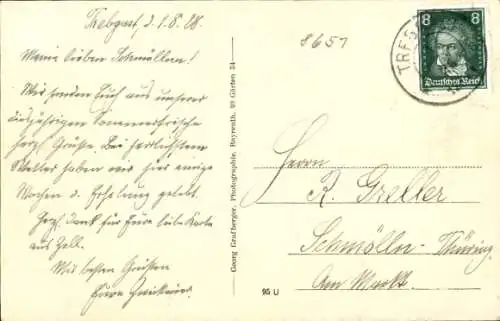 Trebgast, d. 1.8.28.
Meine lieben Schmöllner!
Wir senden Euch aus unserer
diesjährigen Sommerfrische
herzl. Grüße. Bei herrlichstem
Wetter haben wir hier einige
Wochen d. Erholung gelebt.
Herzl. Dank für Eure liebe Karte
aus Zell.
Mit besten Grüßen
Eure
Georg Grafberger, Photographie, Bayreuth, 99 Gärten 34
95 U
8651
TREB
8 8
Deutsches Reich
Herrn
R. Greller
Schmölln-Thüring.
Am Markt